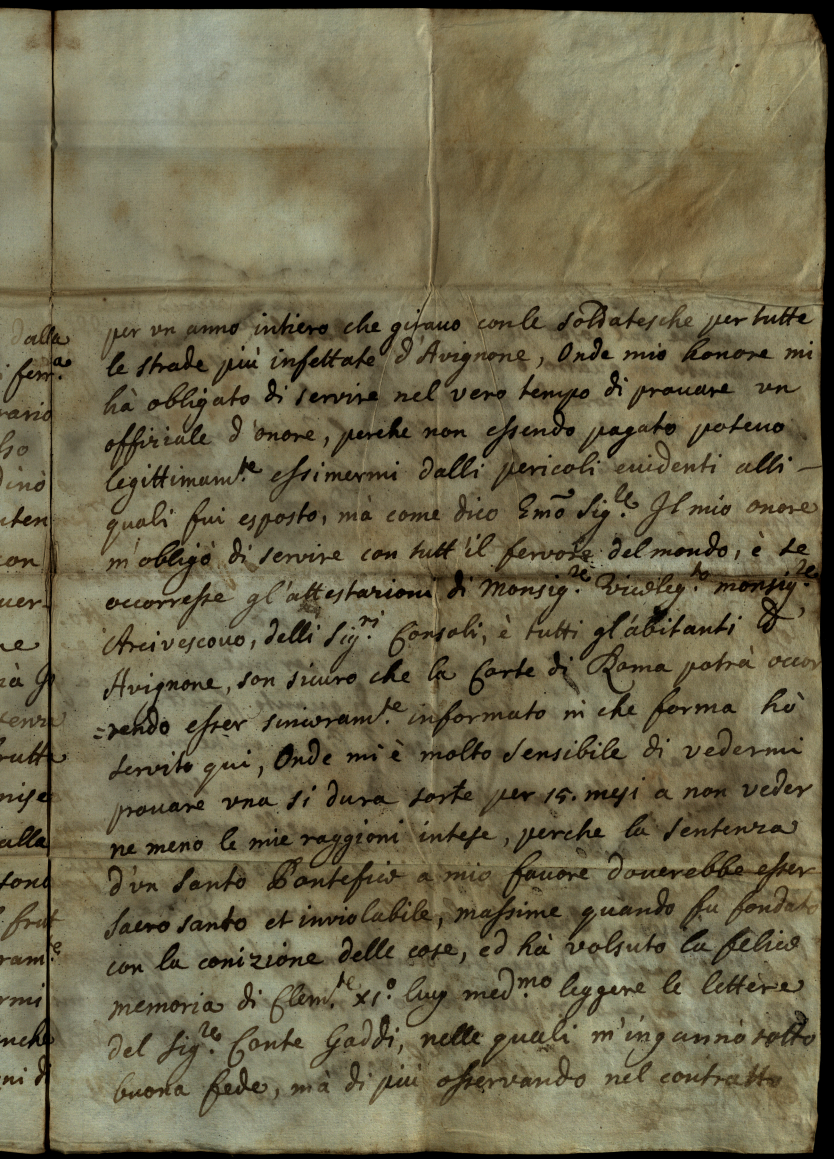 per vn anno intiero che girauo con le soldatesche per tutte
le strade più infettate d'Avignone, Onde mio honore mi
hà obligato di servire nel vero tempo di prouare vn
offiziale d'onore, perche non essendo pagato poteuo
legittimam.te essimermi dalli pericoli euidenti alli –
quali fui esposto, mà come dico Emo Sig.re Il mio onore
m'obligò di servire con tutt'il fervore del mondo, è se
occorresse gl'attestazioni di Monsig.re Viceleg.to monsig.re
Arcivescouo, delli Sig.ri Consoli, è tutti gl'abitanti d'
Avignone, son sicuro che la Corte di Roma potrà occor
=rendo esser sinceram.te informato in che forma hò
servito qui, Onde mi è molto sensibile di vedermi
prouare vna si dura sorte per 15. mesi a non veder
ne meno le mie raggioni intese, perche la sentenza
d'vn Santo Pontefice a mio fauore douerebbe esser
sacro santo et inviolabile, massime quando fu fondato
con la conizione delle cose, ed hà volsuto la felice
memoria di Clem.te XI.o luy med.mo leggere le lettere
del Sig.re Conte Gaddi, nelle quali m'ingannò sotto
buona fede, mà di più osservando nel contratto